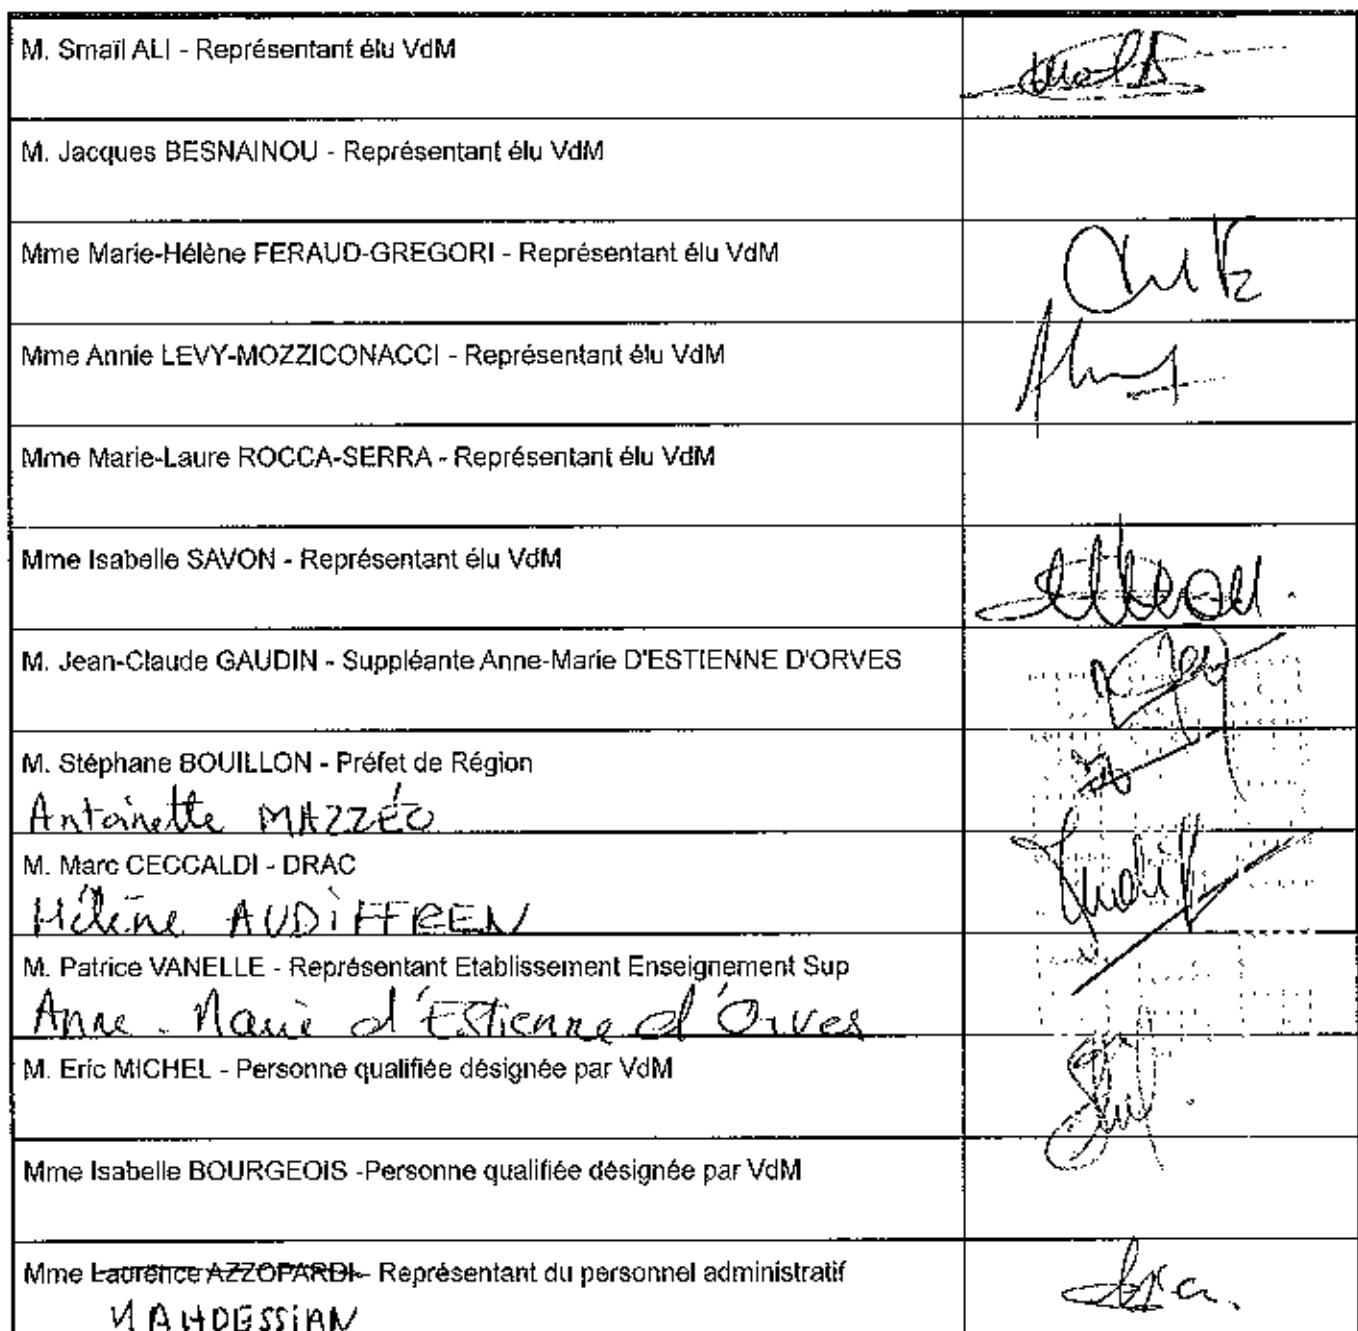 M. Smaïl ALI - Représentant élu VdM
M. Jacques BESNAINOU - Représentant élu VdM
Mme Marie-Hélène FERAUD-GREGORI - Représentant élu VdM
Mme Annie LEVY-MOZZICONACCI - Représentant élu VdM
Mme Marie-Laure ROCCA-SERRA - Représentant élu VdM
Mme Isabelle SAVON - Représentant élu VdM
M. Jean-Claude GAUDIN - Suppléante Anne-Marie D'ESTIENNE D'ORVES
M. Stéphane BOUILLON - Préfet de Région
Antoinette MAZZÉO
M. Marc CECCALDI - DRAC
Hélène AUDIFFREN
M. Patrice VANELLE - Représentant Etablissement Enseignement Sup
Anne-Marie d'Estienne d'Orves
M. Eric MICHEL - Personne qualifiée désignée par VdM
Mme Isabelle BOURGEOIS -Personne qualifiée désignée par VdM
Mme Laurence AZZOPARDI - Représentant du personnel administratif